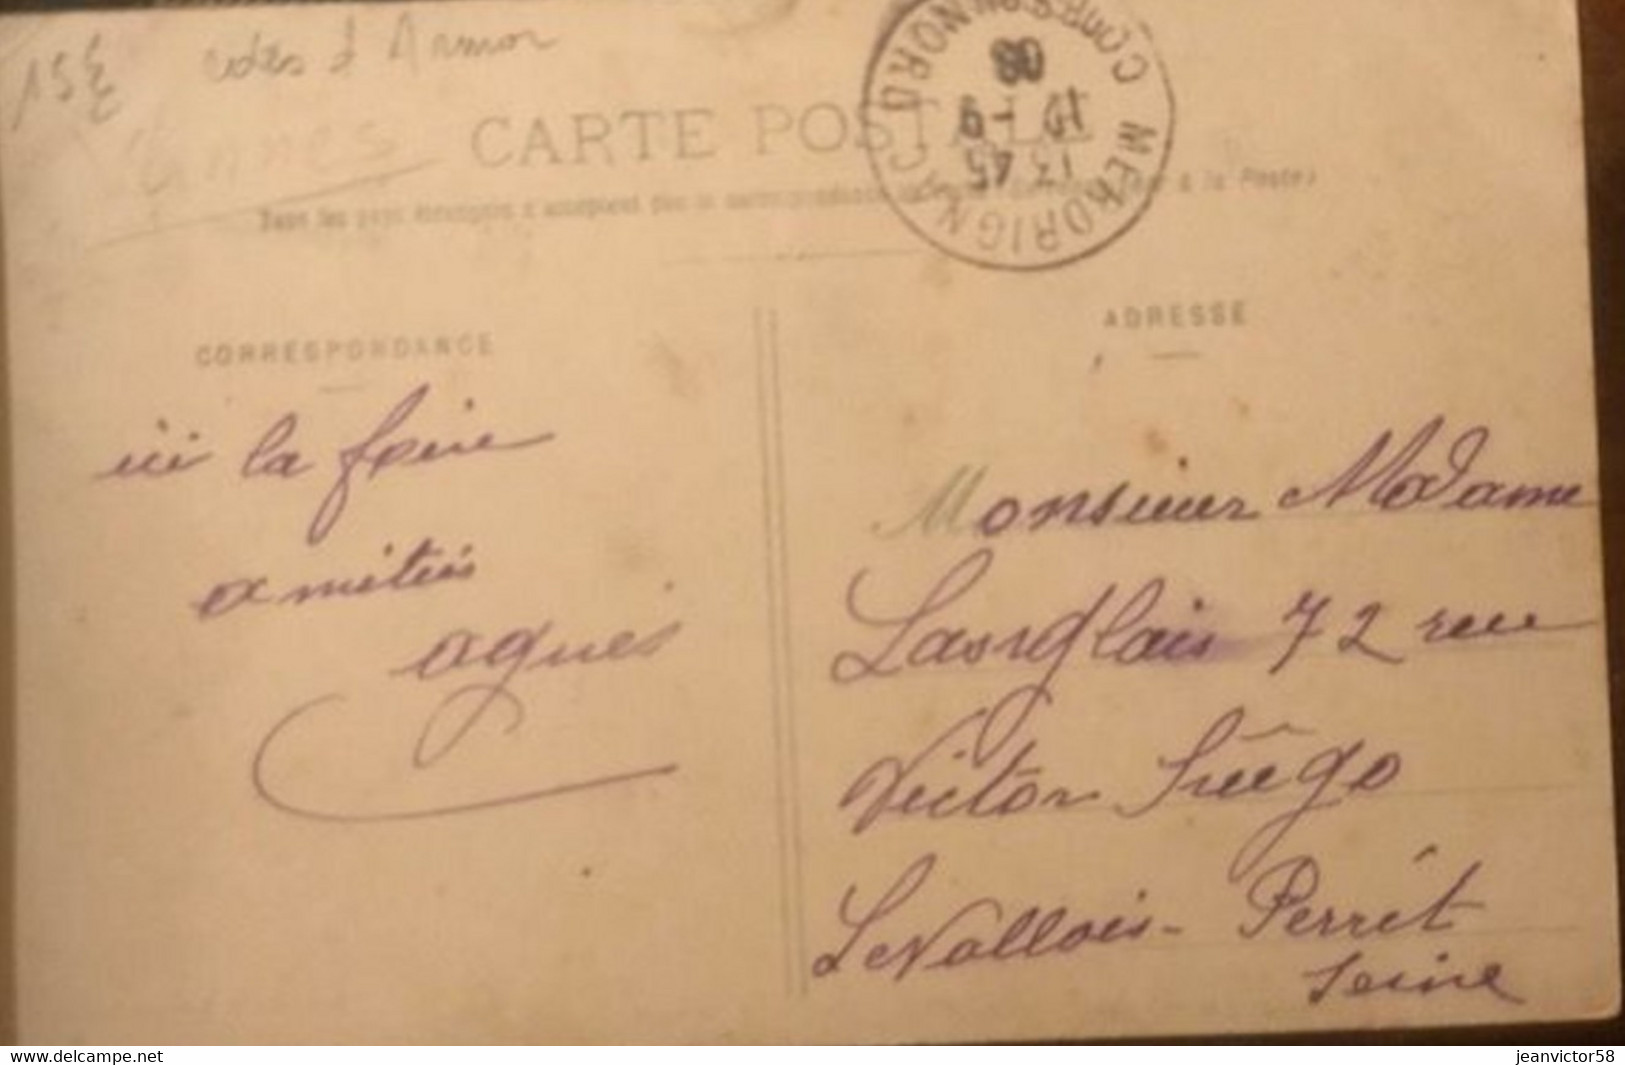 15€
cotes d Armor
CARTE POSTALE
Tous les pays étrangers n'acceptent pas la correspondance à la Poste)
MERDRIGNAC COTES DU NORD
13 45
10 - 9
08
CORRESPONDANCE
ici la foire
amitiés
agnes
ADRESSE
Monsieur Madame
Langlais 72 rue
Victor Hugo
Levallois-Perret
Seine
www.delcampe.net
jeanvictor58